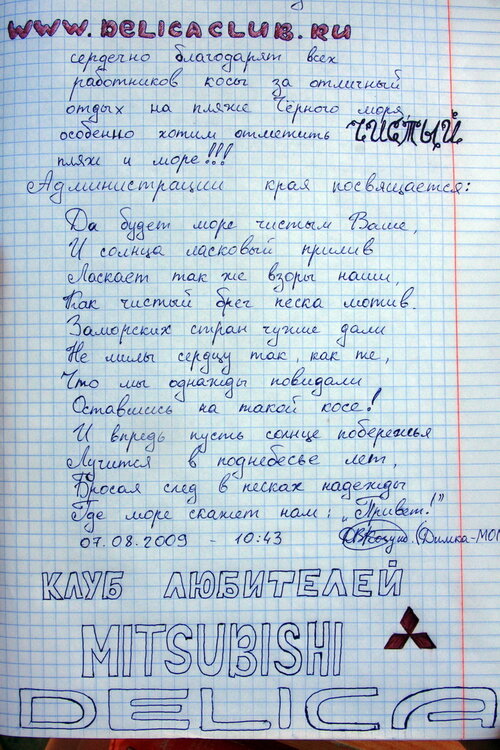 WWW.DELICACLUB.RU
сердечно благодарят всех
работников косы за отличный
отдых на пляже Чёрного моря,
особенно хотим отметить ЧИСТЫЙ
пляж и море!!!
Администрации края посвящается:
Да будет море чистым Ваше,
И солнца ласковый прилив
Ласкает так же взоры наши,
Как чистый брег песка мотив.
Заморских стран чужие дали
Не милы сердцу так, как те,
Что мы однажды повидали
Оставшись на такой косе!
И впредь пусть солнце побережья
Лучится в поднебесье лет,
Бросая след в песках надежды
Где море скажет нам: „Привет!"
07.08.2009 - 10:43 (Димка-МОН
КЛУБ ЛЮБИТЕЛЕЙ
MITSUBISHI
DELICA